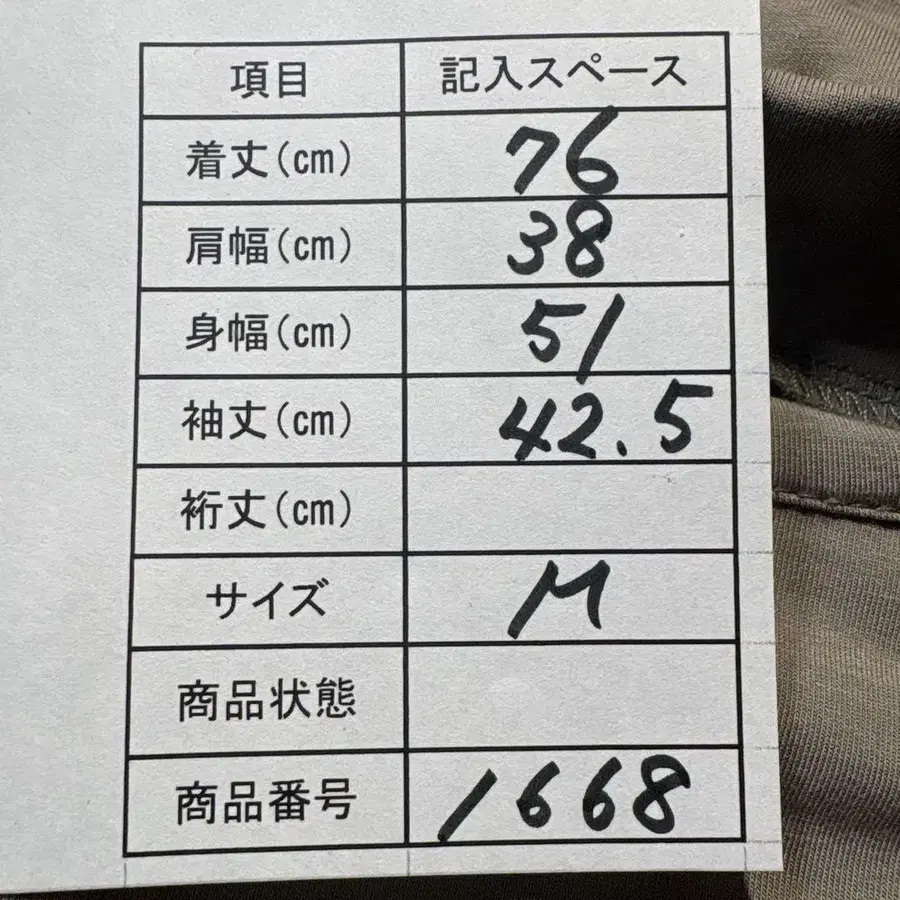 項目 記入スペース
着丈(cm) 76
肩幅(cm) 38
身幅(cm) 51
袖丈(cm) 42.5
裄丈(cm)
サイズ M
商品状態
商品番号 1668